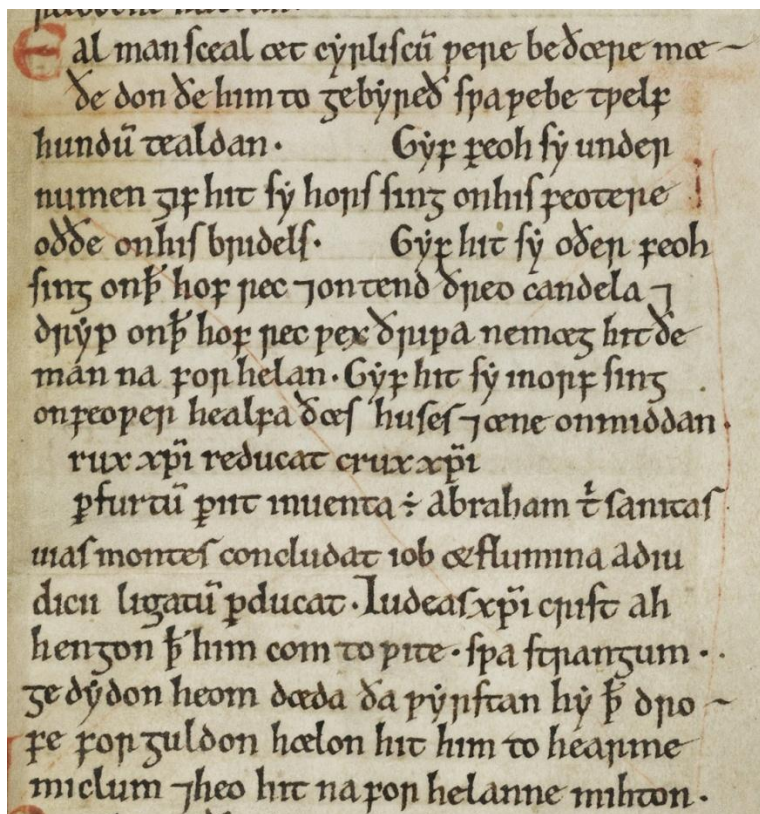 Eal man sceal æt cyrliscū ƿere be ðære mæ-
ðe don ðe him to gebyreð sƿa ƿe be tƿelf
hundū tealdan. Gyf feoh sy under
numen gif hit sy hors sing on his feotere
oððe on his bridels. Gyf hit sy oðer feoh
sing on ꝥ hof rec ⁊ ontend ðreo candela ⁊
dryp on ꝥ hof rec ƿex ðriƿa ne mæg hit ðe
man na for helan. Gyf hit sy inorf sing
on feoƿer healfa ðæs huses ⁊ æne on middan.
rux xp̄i reducat crux xp̄i
ꝑ furtū ꝑiit inventa ÷ abraham t̄ sanitas
uias montes concludat iob & flumina adiu
dicii ligatū ꝑducat. Iudeas xp̄i crist ah
hengon ꝥ him com to ƿite. sƿa strangum.
ge dydon heom dæda ða ƿyrstan hy ꝥ dro-
fe for guldon hælon hit him to hearme
miclum ⁊ heo hit na for helanne mihton.